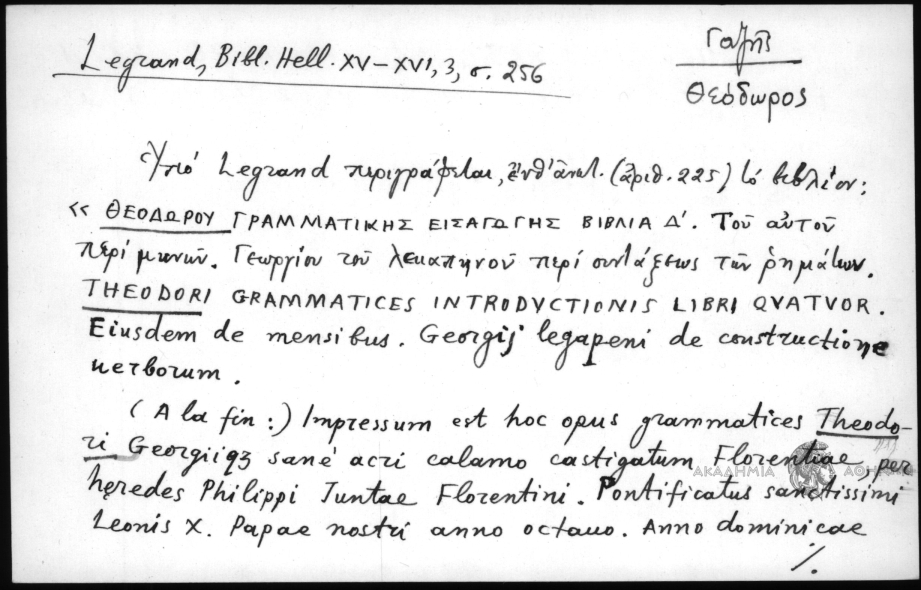 Legrand, Bibl. Hell. XV–XVI, 3, σ. 256
Γαζῆς
Θεόδωρος
Ὑπό Legrand περιγράφεται, ἐνθ' ἀνωτ. (ἀριθ. 225) τό βιβλίον:
« ΘΕΟΔΩΡΟΥ ΓΡΑΜΜΑΤΙΚΗΣ ΕΙΣΑΓΩΓΗΣ ΒΙΒΛΙΑ Δ'. Τοῦ αὐτοῦ
περί μηνῶν. Γεωργίου τοῦ λεκαπηνοῦ περί συντάξεως τῶν ῥημάτων.
THEODORI GRAMMATICES INTRODVCTIONIS LIBRI QVATVOR.
Eiusdem de mensibus. Georgij legapeni de constructione
uerborum.
(A la fin:) Impressum est hoc opus grammatices Theodo-
ri Georgiiqз sanè acri calamo castigatum Florentiae, per
hęredes Philippi Juntae Florentini. Pontificatus sanctissimi
Leonis X. Papae nostri anno octauo. Anno dominicae
./.
ΑΚΑΔΗΜΙΑ ΑΘΗΝΩΝ